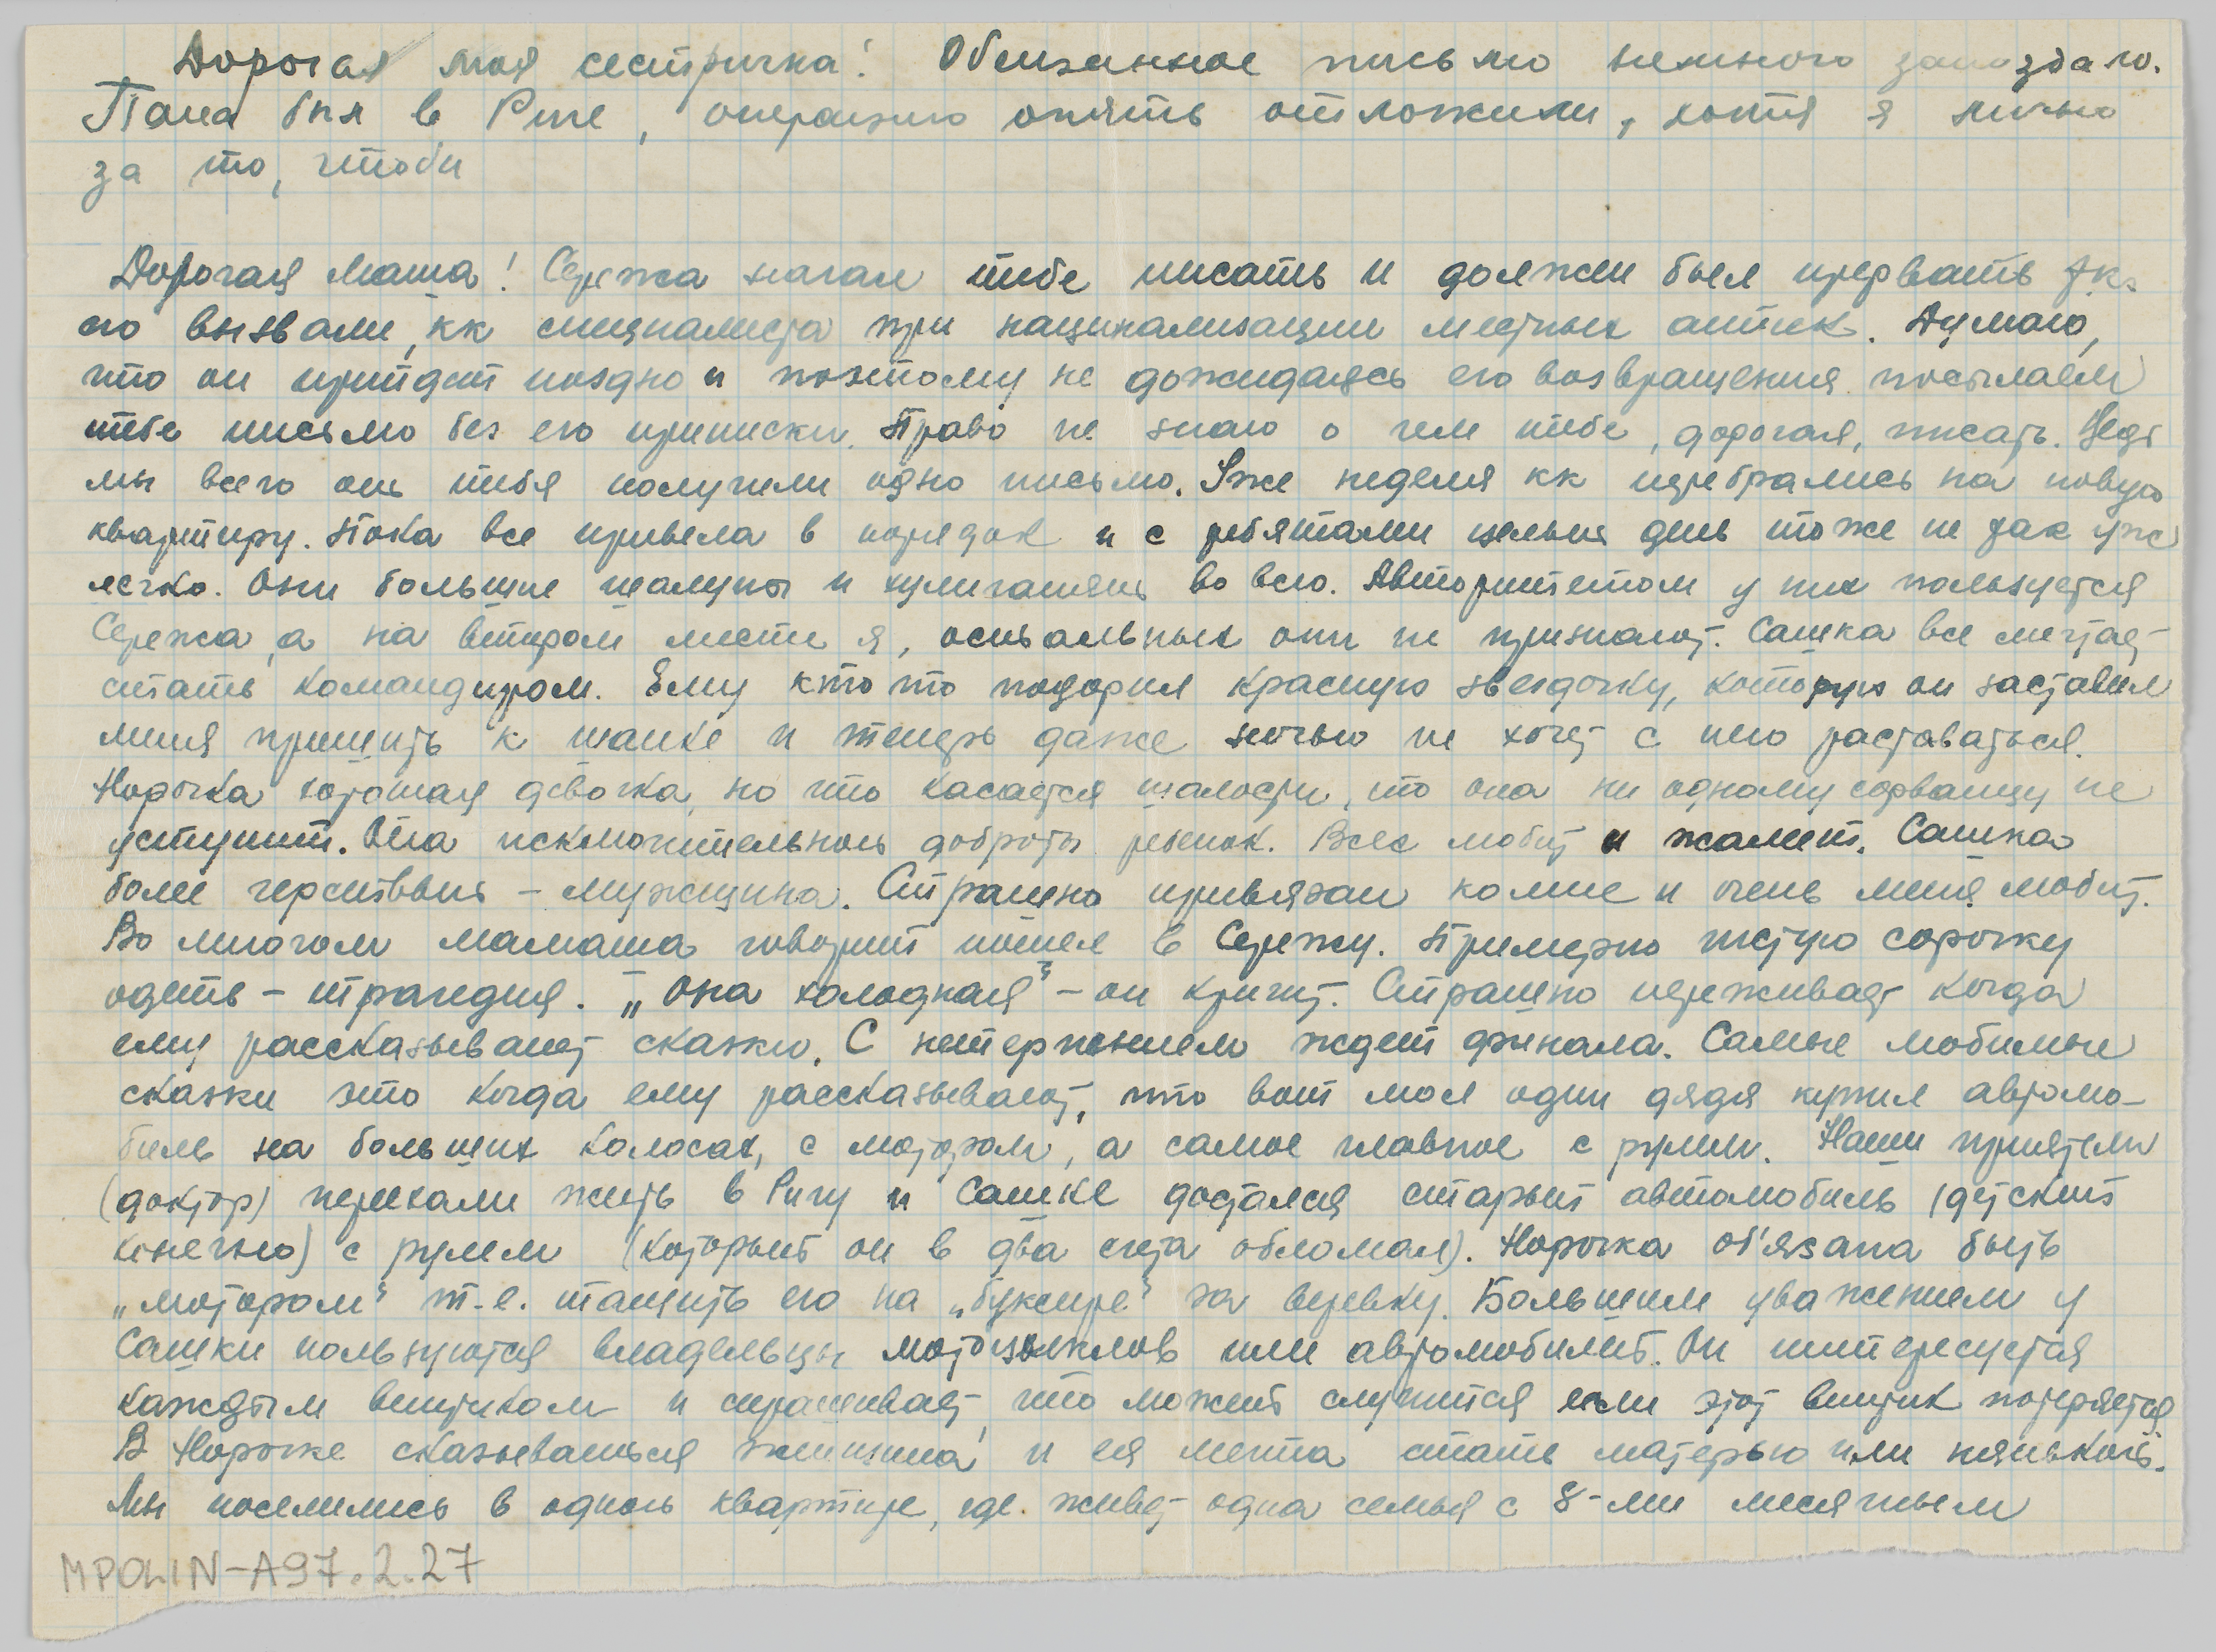 Дорогая моя сестричка! Обещанное письмо немного запоздало.
Папа был в Риге, операцию опять отложили, хотя я лично
за то, чтобы
Дорогая Маша! Сережа начал тебе писать и должен был прервать т.к.
его вызвали, кк специалиста при национализации местных аптек. Думаю,
что он прийдет поздно и поэтому не дожидаясь его возвращения посылаем
тебе письмо без его приписки. Право не знаю о чем тебе, дорогая, писать. Ведь
мы всего от тебя получили одно письмо. Уже неделя кк перебрались на новую
квартиру. Пока все привела в порядок и с ребятами целый день тоже не так уже
легко. Они большие шалуны и хулиганят во всю. Авторитетом у них пользуется
Сережа, а на втором месте я, остальных они не признают. Сашка все мечтает
стать командиром. Ему кто то подарил красную звездочку, которую он заставил
меня пришить к шапке и теперь даже ночью не хочет с нею раставаться.
Норочка хорошая девочка, но что касается шалости, то она ни одному сорванцу не
уступит. Она исключительной доброты ребенок. Всех любит и жалеет. Сашка
более черствый – мужщина. Страшно привязан комне и очень меня любит.
Во многом мамаша говорит пошел в Сережу. Примерно чистую сорочку
одеть – трагедия. „Она холодная" – он кричит. Страшно переживает когда
ему рассказывает сказки. С нетерпением ждет финала. Самые любимые
сказки это когда ему рассказывают, что вот мол один дядя купил автомо-
биль на больших колосах, с мотором, а самое главное с рулем. Наши приятели
(доктор) переехали жить в Ригу и Сашке достался старый автомобиль (детский
конечно) с рулем (который он в два счета обломал). Норочка об'язана быть
„мотором" т.е. тащить его на „буксире" за веревку. Большим уважением у
Сашки пользуются владельцы мотоциклов или автомобилей. Он интересуется
каждым винтиком и спрашивает, что может случится если этот винтик потеряется.
В Норочке сказывается женщина и ея мечта стать матерью или нянькой.
Мы поселились в одной квартире, где живет одна семья с 8-ми месячным
MPOLIN-A97.2.27